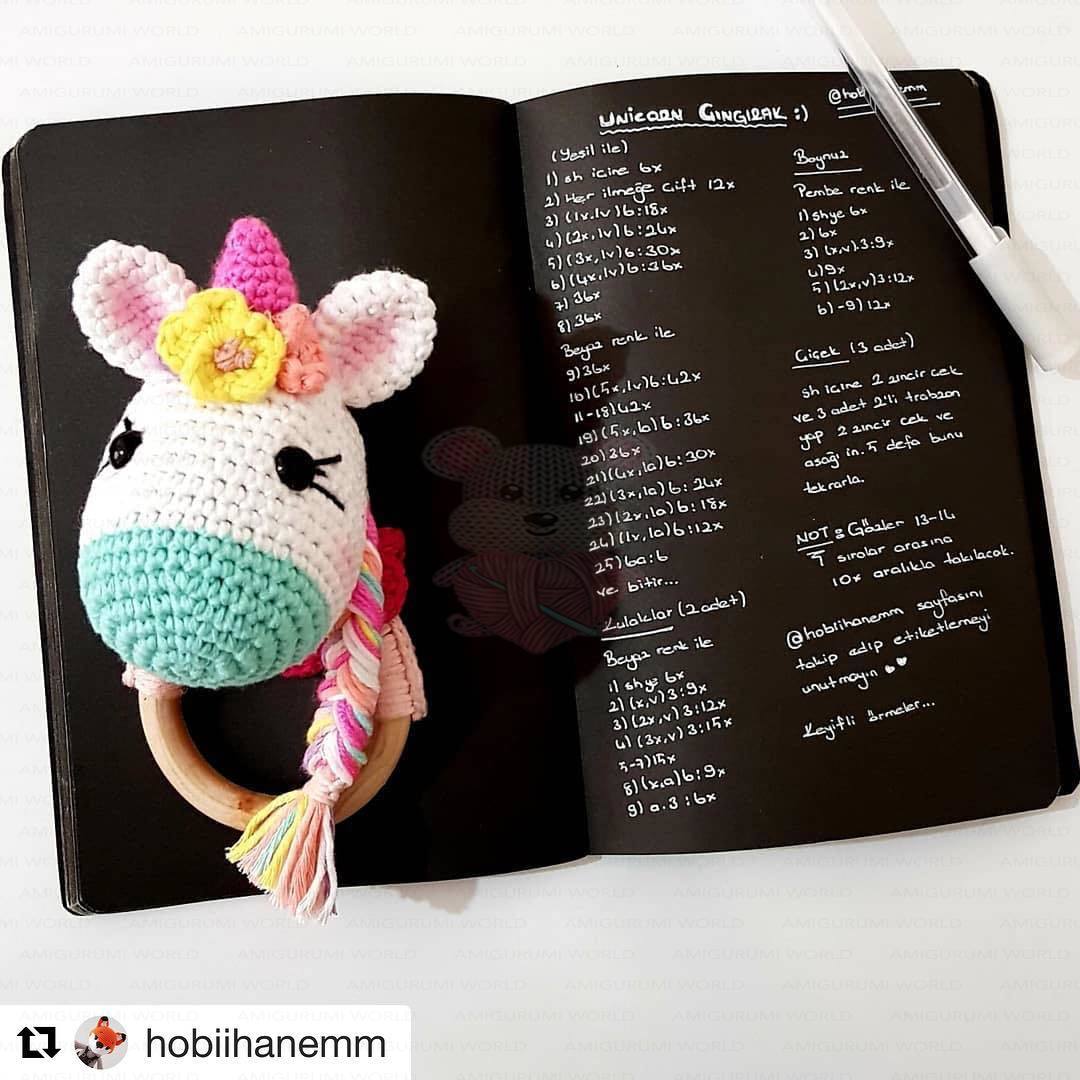 UNiCORN ÇINGIRAK :)
(Yeşil ile)
1) sh içine 6x
2) Her ilmeğe Çift 12x
3) (1x,1v)6:18x
4) (2x,1v)6:24x
5) (3x,1v)6:30x
6) (4x,1v)6:36x
7) 36x
8) 36x
Beyaz renk ile
9) 36x
10) (5x,1v)6:42x
11-18) 42x
19) (5x,1a)6:36x
20) 36x
21) (4x,1a)6:30x
22) (3x,1a)6:24x
23) (2x,1a)6:18x
24) (1x,1a)6:12x
25) 6a:6
ve bitir...
Kulaklar (2 adet)
Beyaz renk ile
1) shye 6x
2) (x,v)3:9x
3) (2x,v)3:12x
4) (3x,v)3:15x
5-7) 15x
8) (x,a)6:9x
9) a.3:6x
Boynuz
Pembe renk ile
1) shye 6x
2) 6x
3) (x,v).3:9x
4) 9x
5) (2x,v)3:12x
6)-9) 12x
Çiçek (3 adet)
sh içine 2 zincir çek
ve 3 adet 2'li trabzan
yap 2 zincir çek ve
aşağı in. 5 defa bunu
tekrarla.
NOT: Gözler 13-14
sıralar arasına
10x aralıkla takılacak.
@hobiihanemm sayfasını
takip edip etiketlemeyi
unutmayın
Keyifli örmeler...
hobiihanemm
AMIGURUMI WORLD